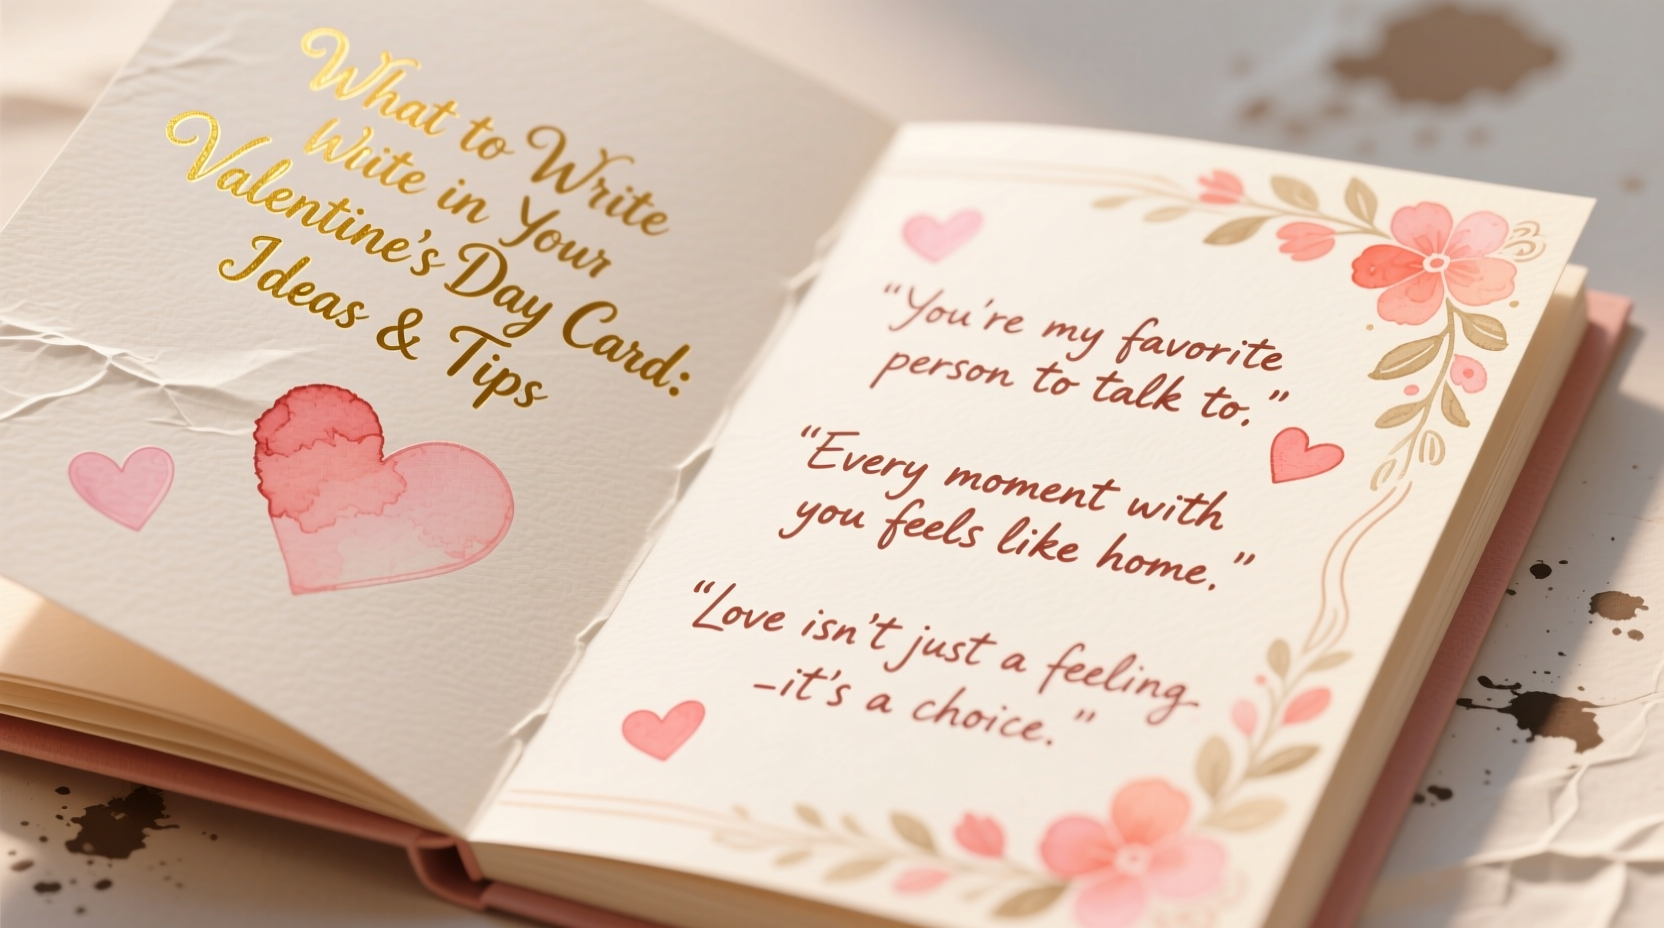 What to Write
Write in Your
Valentine's Day Card:
Ideas & Tips
"You're my favorite
person to talk to."
"Every moment with
you feels like home."
"Love isn't just a feeling
–it's a choice."